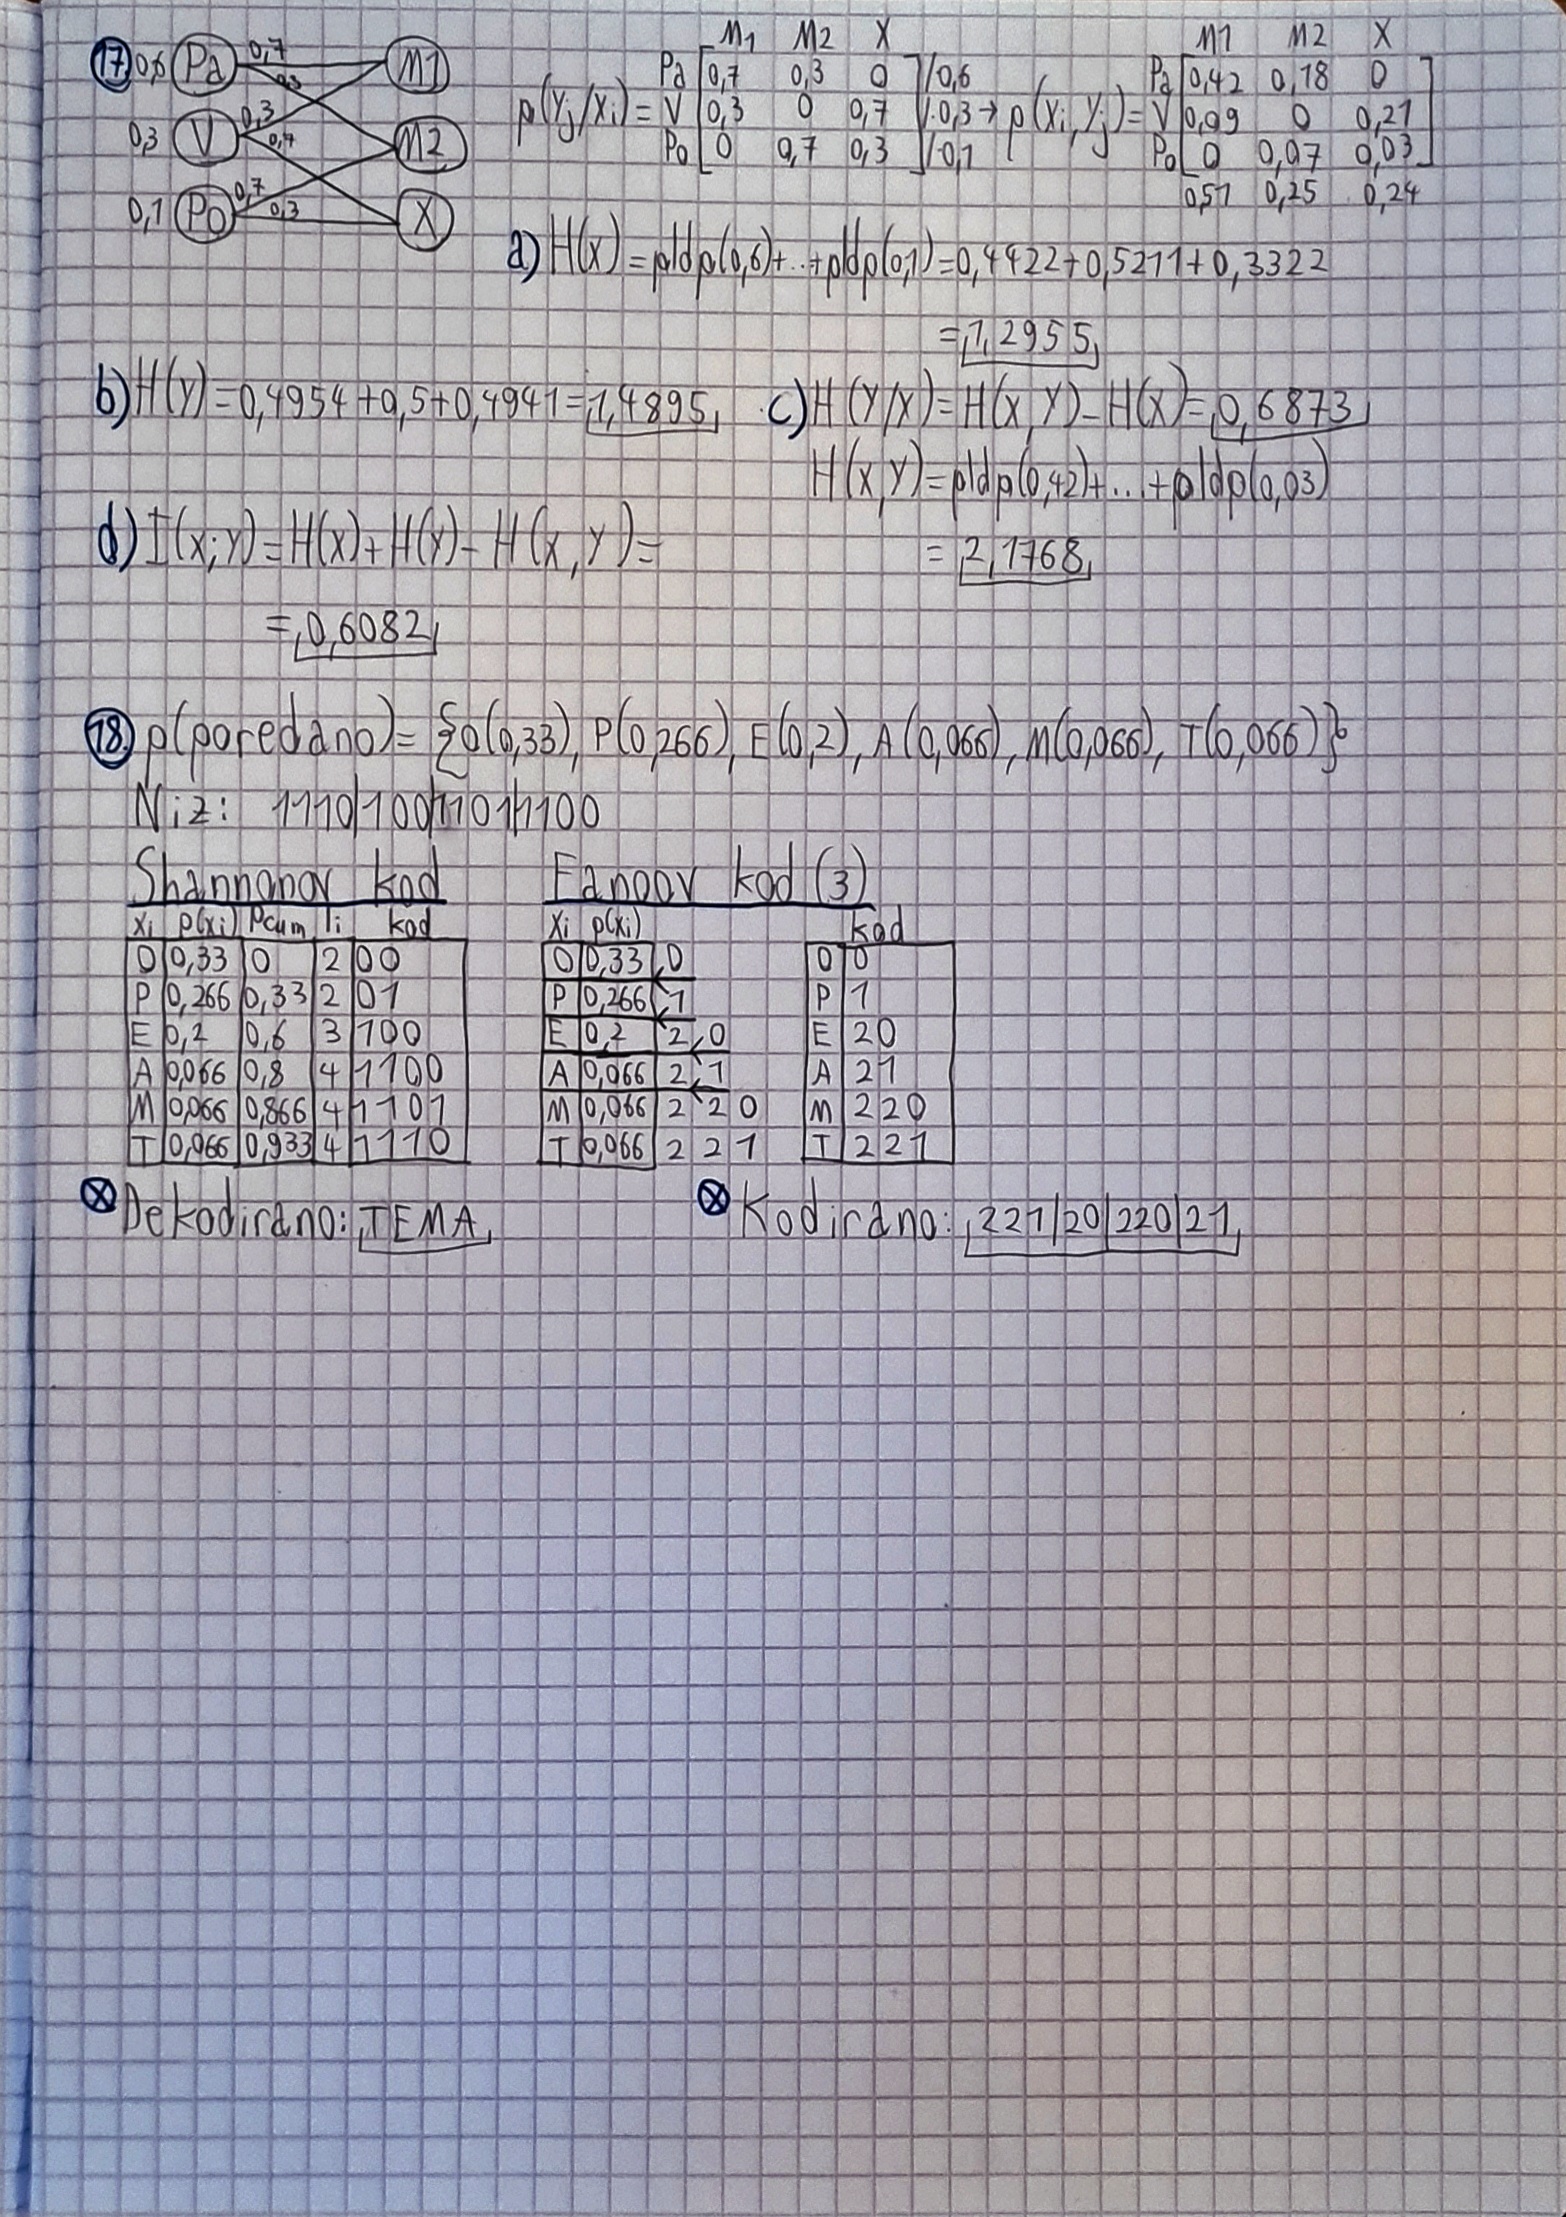 17. 0,6 Pa 0,7 0,3 M1
0,3 V 0,3 0,7 M2
0,1 Po 0,7 0,3 X
M1 M2 X
p(Yj/Xi) = Pa [0,7 0,3 0] /·0,6
V 0,3 0 0,7 /·0,3 →
Po 0 0,7 0,3 /·0,1
M1 M2 X
p(Xi,Yj) = Pa [0,42 0,18 0]
V 0,09 0 0,21
Po 0 0,07 0,03
0,51 0,25 0,24
a) H(X) = pldp(0,6)+...+pldp(0,1) = 0,4422+0,5211+0,3322
= 1,2955
b) H(Y) = 0,4954+0,5+0,4941 = 1,4895
c) H(Y/X) = H(X,Y) - H(X) = 0,6873
H(X,Y) = pldp(0,42)+...+pldp(0,03)
= 2,1768
d) I(X;Y) = H(X) + H(Y) - H(X,Y) =
= 0,6082
18. p(poredano) = {O(0,33), P(0,266), E(0,2), A(0,066), M(0,066), T(0,066)}
Niz: 1110|100|1101|1100
Shannonov kod
xi p(xi) Pcum li kod
O 0,33 0 2 00
P 0,266 0,33 2 01
E 0,2 0,6 3 100
A 0,066 0,8 4 1100
M 0,066 0,866 4 1101
T 0,066 0,933 4 1110
Fanoov kod (3)
xi p(xi)
O 0,33 0
P 0,266 1
E 0,2 2 0
A 0,066 2 1
M 0,066 2 2 0
T 0,066 2 2 1
kod
O 0
P 1
E 20
A 21
M 220
T 221
⊗ Dekodirano: TEMA
⊗ Kodirano: 221|20|220|21